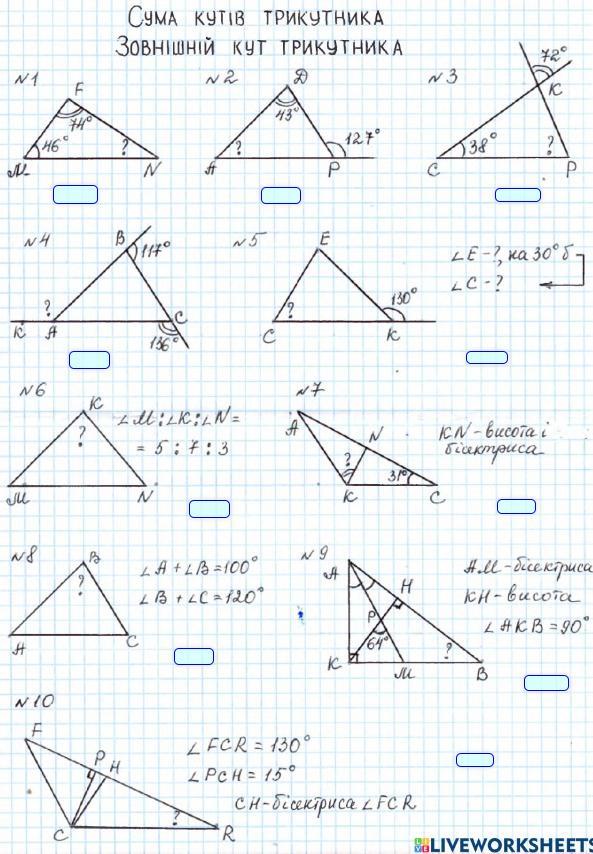 Сума кутів трикутника
Зовнішній кут трикутника
№1
F
74°
46°
?
M
N
№2
D
43°
?
127°
A
P
№3
72°
K
38°
?
C
P
№4
B
117°
?
K
A
C
136°
№5
E
?
130°
C
K
∠E-?, на 30° б
∠C-?
№6
K
?
M
N
∠M:∠K:∠N=
= 5 : 7 : 3
№7
A
N
?
31°
K
C
KN-висота і
бісектриса
№8
B
?
A
C
∠A+∠B=100°
∠B+∠C=120°
№9
A
H
P
64°
?
K
M
B
AM-бісектриса
KH-висота
∠AKB=90°
№10
F
P
H
?
C
R
∠FCR=130°
∠PCH=15°
CH-бісектриса ∠FCR
LIVEWORKSHEETS